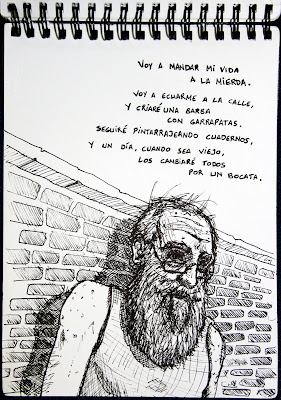 VOY A MANDAR MI VIDA
A LA MIERDA.
VOY A ECHARME A LA CALLE,
Y CRIARÉ UNA BARBA
CON GARRAPATAS.
SEGUIRÉ PINTARRAJEANDO CUADERNOS,
Y UN DÍA, CUANDO SEA VIEJO,
LOS CAMBIARÉ TODOS
POR UN BOCATA.